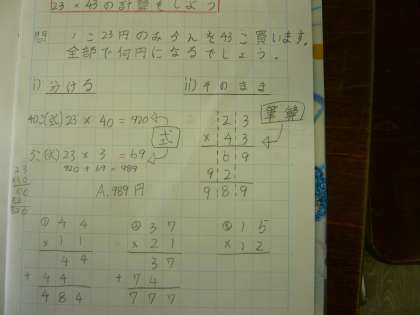 23×43の計算をしよう
問 1こ23円のみかんを43こ買います。
全部で何円になるでしょう。
i) 分ける
ii) そのまま
40こ(式) 23 × 40 = 920
式
3こ(式) 23 × 3 = 69
920 + 69 = 989
A. 989円
筆算
23
×43
69
92
989
① 44
×11
44
+ 44
484
② 37
×21
37
+ 74
777
③ 15
×12